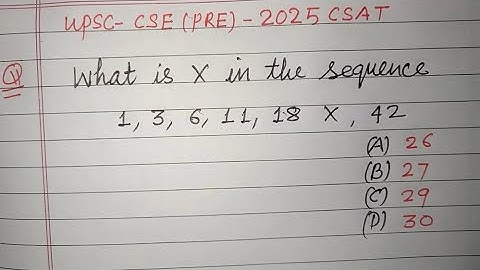 UPSC- CSE (PRE) - 2025 CSAT
Q What is X in the sequence
1, 3, 6, 11, 18 X, 42
(A) 26
(B) 27
(C) 29
(D) 30